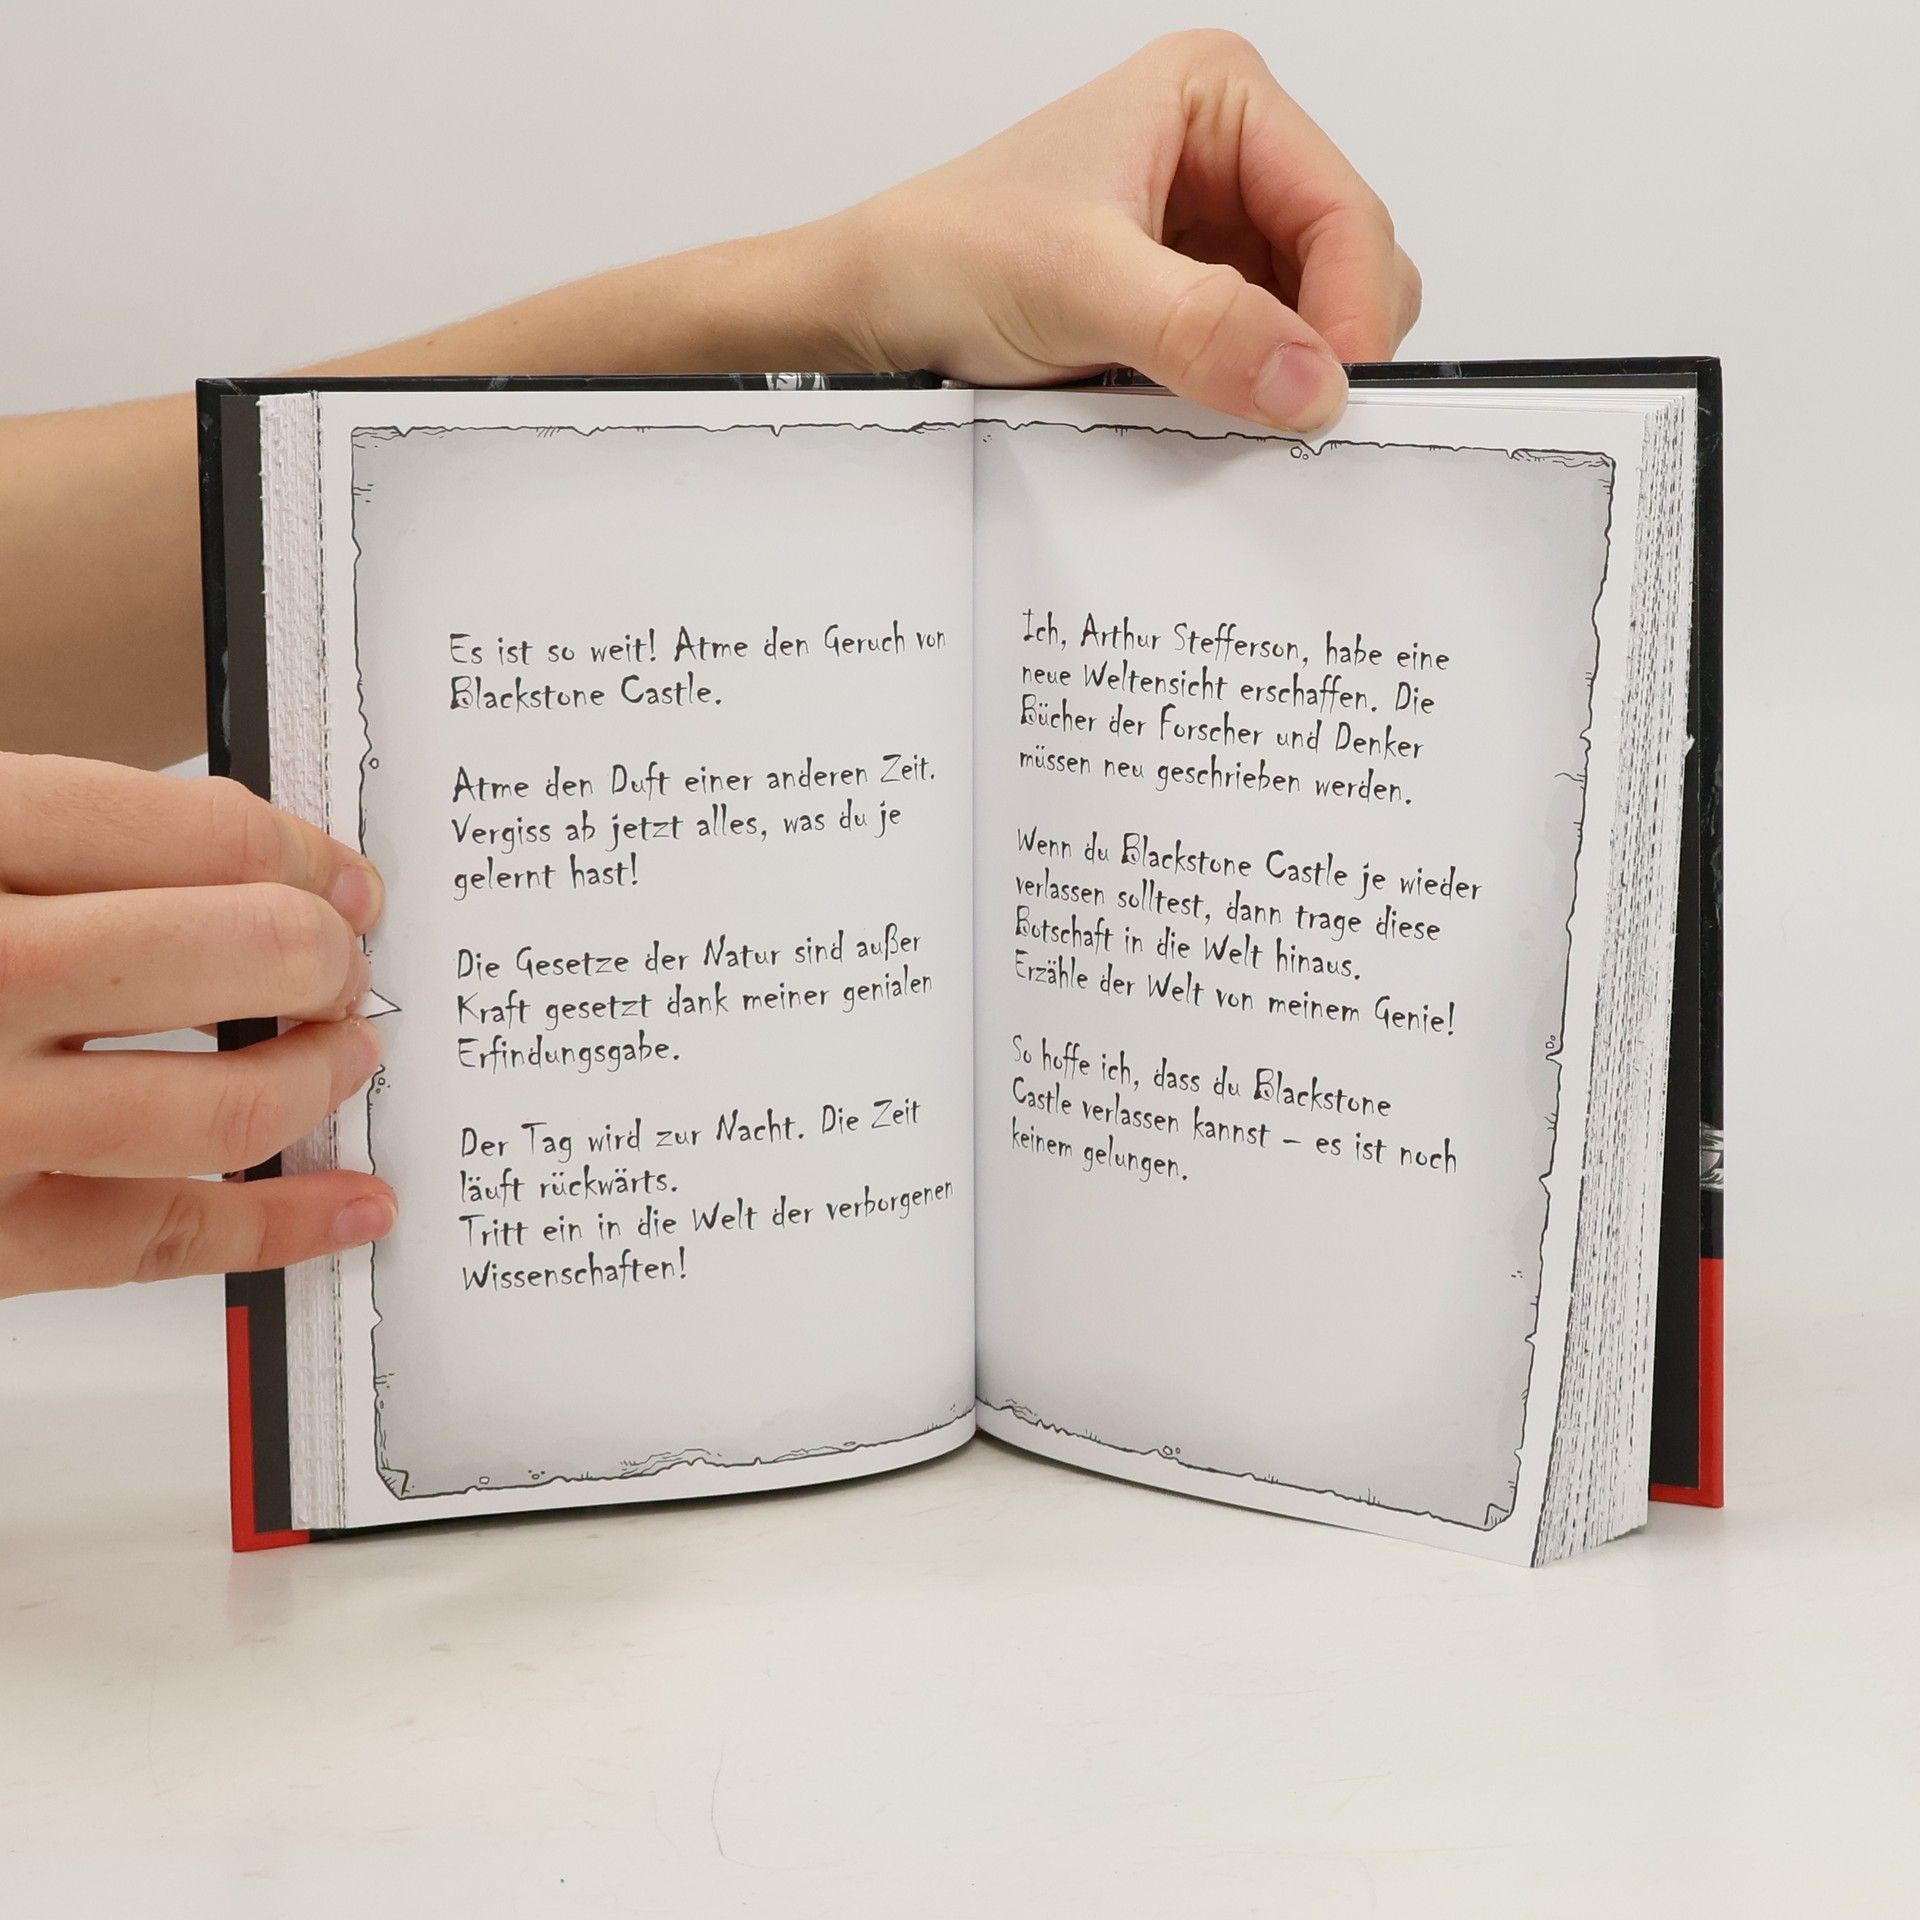 Es ist so weit! Atme den Geruch von
Blackstone Castle.
Atme den Duft einer anderen Zeit.
Vergiss ab jetzt alles, was du je
gelernt hast!
Die Gesetze der Natur sind außer
Kraft gesetzt dank meiner genialen
Erfindungsgabe.
Der Tag wird zur Nacht. Die Zeit
läuft rückwärts.
Tritt ein in die Welt der verborgenen
Wissenschaften!
Ich, Arthur Stefferson, habe eine
neue Weltensicht erschaffen. Die
Bücher der Forscher und Denker
müssen neu geschrieben werden.
Wenn du Blackstone Castle je wieder
verlassen solltest, dann trage diese
Botschaft in die Welt hinaus.
Erzähle der Welt von meinem Genie!
So hoffe ich, dass du Blackstone
Castle verlassen kannst – es ist noch
keinem gelungen.